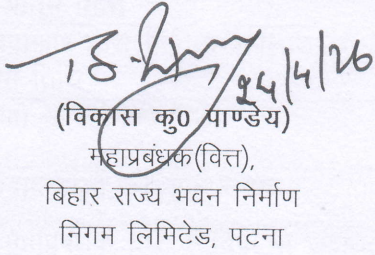 24/4/26
(विकास कु0 पाण्डेय)
महाप्रबंधक(वित्त),
बिहार राज्य भवन निर्माण
निगम लिमिटेड, पटना